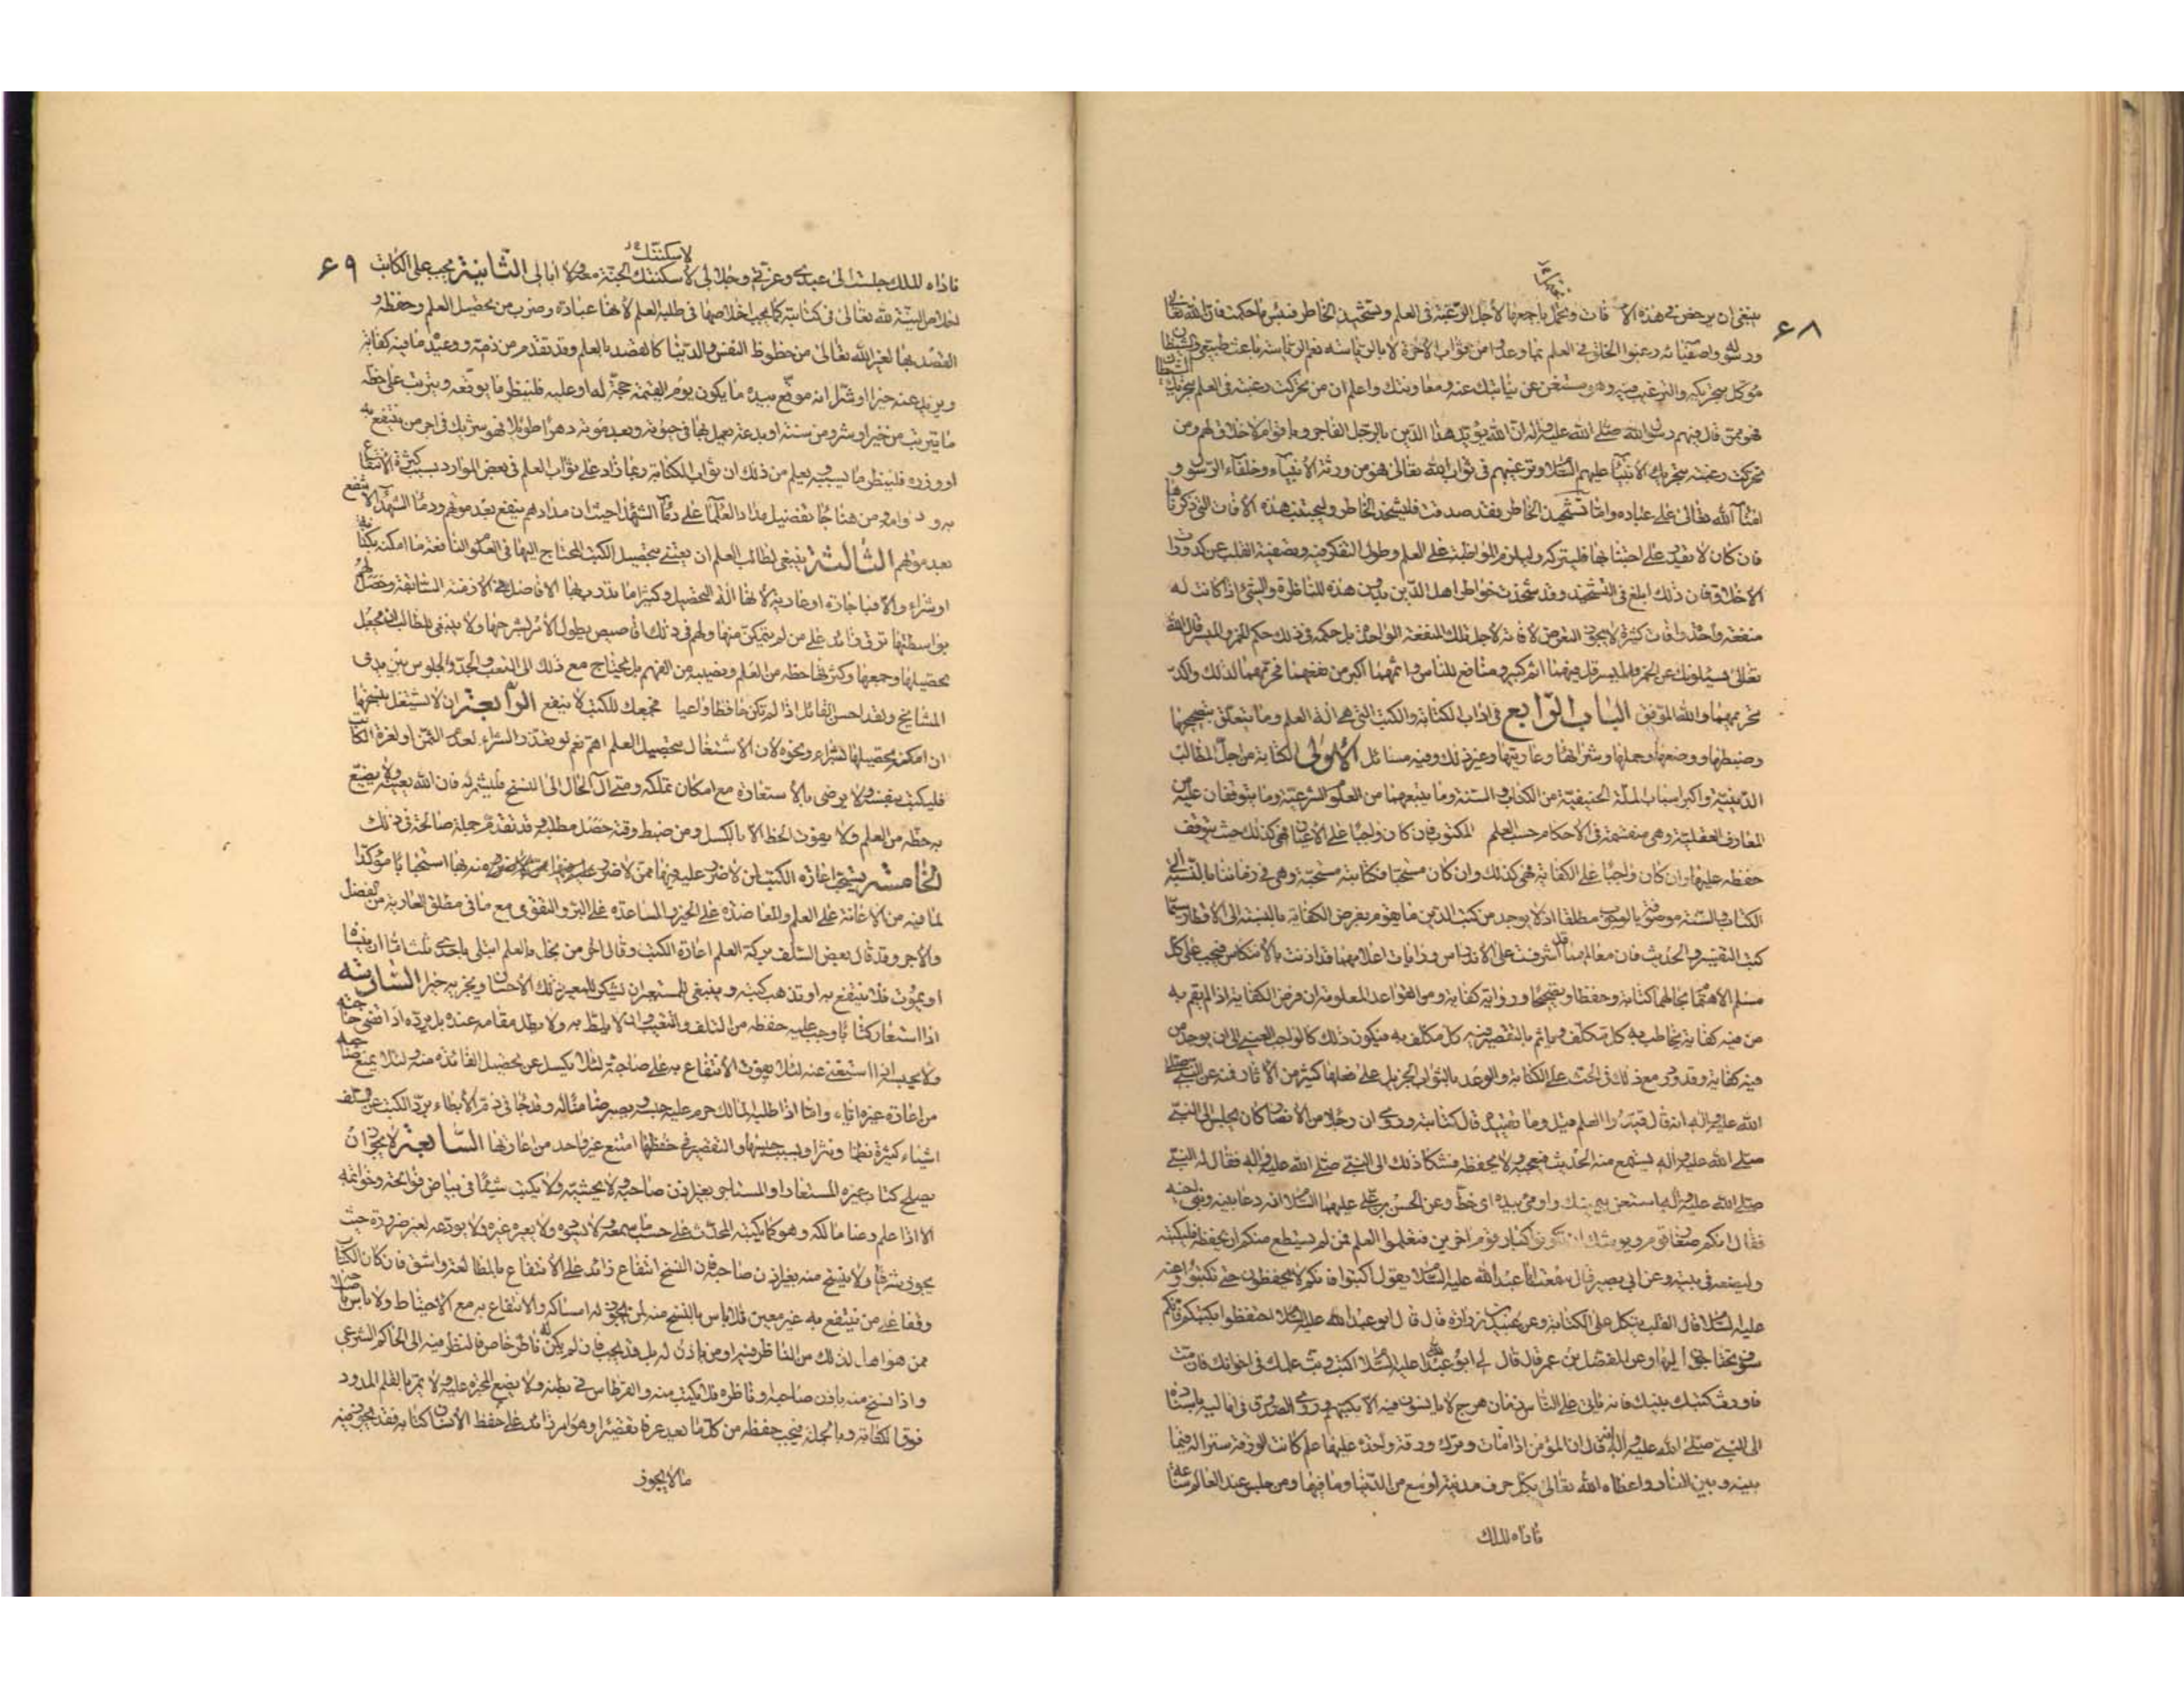 ۶۸
ينبغى ان يرخص فى هذه الآفات ويحمل باجمعها لاجل الرغبة فى العلم وتشحيذ الخاطر فبئس ما حكمت فان الله تعالى
ورسوله واصفيائه رغبوا الخلق فى العلم بما وعدوا من ثواب الآخرة لا بالرئاسة نعم الرئاسة باعث طبيعى والشيطان
موكل بتحريكه والترغيب فيه وهو مستغن عن نيابتك عنه ومعاونتك واعلم ان من تحركت رغبته فى العلم بتحريك الشيطان
فهو ممن قال فيهم رسول الله صلى الله عليه وآله ان الله يؤيد هذا الدين بالرجل الفاجر وباقوام لا خلاق لهم ومن
تحركت رغبته بتحريك الانبياء عليهم السلام وترغيبهم فى ثواب الله تعالى فهو من ورثة الانبياء وخلفاء الرسل و
امناء الله تعالى على عباده واما تشحيذ الخاطر فقد صدقت فليشحذ الخاطر وليجتنب هذه الآفات التى ذكرناها
فان كان لا يقدر على اجتنابها فليتركه وليلزم المواظبة على العلم وطول التفكر فيه وتصفية القلب عن كدورات
الاخلاق فان ذلك ابلغ فى التشحيذ وقد تشحذت خواطر اهل الدين بدون هذه المناظرة والشئ اذا كانت له
منفعة واحدة وآفات كثيرة لا يجوز التعرض لآفاته لاجل تلك المنفعة الواحدة بل حكمه فى ذلك حكم الخمر والميسر قال الله
تعالى يسئلونك عن الخمر والميسر قل فيهما اثم كبير ومنافع للناس واثمهما اكبر من نفعهما فحرمهما لذلك واكد
تحريمهما والله الموفق الباب الرابع فى اداب الكتابة والكتب التى هى آلة العلم وما يتعلق بتصحيحها
وضبطها ووضعها وحملها وشرائها وعاريتها وغير ذلك وفيه مسائل الاولى الكتابة من اجل المطالب
الدينية واكبر اسباب الملة الحنيفية من الكتاب والسنة وما يتبعهما من العلوم الشرعية وما يتوقفان عليه من
المعارف العقلية وهى منقسمة فى الاحكام حسب العلم المكتوب فان كان واجبا على الاعيان فهى كذلك حيث يتوقف
حفظه عليها وان كان واجبا على الكفاية فهى كذلك وان كان مستحبا فكتابته مستحبة وهى فى زماننا بالنسبة الى
الكتاب والسنة موصوفة بالوجوب مطلقا اذ لا يوجد من كتب الدين ما يقوم بفرض الكفاية بالنسبة الى الاقطار سيما
كتب التفسير والحديث فان معالمهما قد اشرفت على الاندراس ورايات اعلامهما قد اذنت بالانتكاس فيجب على كل
مسلم الاهتمام بحالهما كتابة وحفظا وتصحيحا ورواية كفاية ومن القواعد المعلومة ان فرض الكفاية اذا لم يقم به
من فيه كفاية يخاطب به كل مكلف وياثم بالتقصير فيه كل مكلف به فيكون ذلك كالواجب العينى الى ان يوجد من
فيه كفاية وقد ورد مع ذلك فى الحث على الكتابة والوعد بالثواب الجزيل على فعلها كثير من الآثار فمنه عن النبى صلى
الله عليه وآله انه قال قيدوا العلم قيل وما تقييده قال كتابته وروى ان رجلا من الانصار كان يجلس الى النبى
صلى الله عليه وآله يستمع منه الحديث فيعجبه ولا يحفظه فشكا ذلك الى النبى صلى الله عليه وآله فقال له النبى
صلى الله عليه وآله استعن بيمينك واومى بيده اى خط وعن الحسن بن على عليهما السلام انه دعا بنيه وبنى اخيه
فقال انكم صغار قوم ويوشك ان تكونوا كبار قوم اخرين فتعلموا العلم فمن لم يستطع منكم ان يحفظه فليكتبه
وليضعه فى بيته وعن ابى بصير قال سمعت ابا عبد الله عليه السلام يقول اكتبوا فانكم لا تحفظون حتى تكتبوا وعنه
عليه السلام قال القلب يتكل على الكتابة وعن عبيد بن زرارة قال قال ابو عبد الله عليه السلام احتفظوا بكتبكم فانكم
سوف تحتاجون اليها وعن المفضل بن عمر قال قال لى ابو عبد الله عليه السلام اكتب وبث علمك فى اخوانك فان مت
فاورث كتبك بنيك فانه ياتى على الناس زمان هرج لا يانسون فيه الا بكتبهم وروى الصدوق فى اماليه باسناده
الى النبى صلى الله عليه وآله انه قال ان المؤمن اذا مات وترك ورقة واحدة عليها علم كانت الورقة سترا له فيما
بينه وبين النار واعطاه الله تعالى بكل حرف مدينة اوسع من الدنيا وما فيها ومن جلس عند العالم ساعة
ناداه الملك
۶۹
لاسكنتك
ناداه الملك جلست الى عبدى وعزتى وجلالى لاسكنتك الجنة معه ولا ابالى الثانية يجب على الكاتب
اخلاص النية لله تعالى فى كتابته كما يجب اخلاصها فى طلبه العلم لانها عبادة وضرب من تحصيل العلم وحفظه و
القصد بها لغير الله تعالى من حظوظ النفس والدنيا كالقصد بالعلم وقد تقدم من ذمه ووعيده ما فيه كفاية
ويزيد عنه خيرا او شرا انه موقع بيده ما يكون يوم القيمة حجة له او عليه فلينظر ما يوقعه ويترتب على خطه
ما يترتب من خير او شر ومن سنة او بدعة يعمل بها فى حيوته وبعد موته دهرا طويلا فهو شريك فى اجر من ينتفع به
او وزره فلينظر ما يسببه ويعلم من ذلك ان ثواب الكتابة ربما زاد على ثواب العلم فى بعض الموارد بسبب كثرة الانتفاع
به ودوامه ومن هنا جاء تفضيل مداد العلماء على دماء الشهداء حيث ان مدادهم ينتفع بعد موتهم ودماء الشهداء لا تنفع
بعد موتهم الثالثة ينبغى لطالب العلم ان يعتنى بتحصيل الكتب المحتاج اليها فى العلوم النافعة ما امكنه بكتابة
او شراء والا فباجارة او عارية لانها آلة التحصيل وكثيرا ما تدرب بها الافاضل فى الازمنة السابقة وحصل لهم
بواسطتها ترقى زائد على من لم يتمكن منها ولهم فى ذلك اقاصيص يطول الامر بشرحها ولا ينبغى للطالب ان يجعل
تحصيلها وجمعها وكثرتها حظه من العلم ونصيبه من الفهم بل يحتاج مع ذلك الى التعب والجد والجلوس بين يدى
المشائخ ولقد احسن القائل اذا لم تكن حافظا واعيا فجمعك للكتب لا ينفع الرابعة ان لا يشتغل بنسخها
ان امكنه تحصيلها بشراء ونحوه لان الاشتغال بتحصيل العلم اهم نعم لو تعذر الشراء لعدم الثمن او لعزة الكتاب
فليكتب بنفسه ولا يرضى بالاستعارة مع امكان تملكه ومتى آل الحال الى النسخ فليشمر له فان الله يعينه ولا يضيع
به حظه من العلم ولا يفوت الحظ الا بالكسل ومن ضبط وقته حصل مطلبه وقد تقدم جملة صالحة فى ذلك
الخامسة يستحب اعارة الكتب لمن لا ضرر عليه فيها ممن لا ضرر منه بها استحبابا مؤكدا
لما فيه من الاعانة على العلم والمعاضدة على الخير والمساعدة على البر والتقوى مع ما فى مطلق العارية من الفضل
والاجر وقد قال بعض السلف بركة العلم اعارة الكتب وقال آخر من بخل بالعلم ابتلى باحدى ثلث اما ان ينساه
او يموت فلا ينتفع به او تذهب كتبه وينبغى للمستعير ان يشكر للمعير ذلك الاحسان ويجزيه خيرا السادسة
اذا استعار كتابا وجب عليه حفظه من التلف والتعيب وان لا يبطئ به ولا يطيل مقامه عنده بل يرده اذا قضى حاجته
ولا يحبسه اذا استغنى عنه لئلا يفوت الانتفاع به على صاحبه ولئلا يكسل عن تحصيل الفائدة منه ولئلا يمنع صاحبه
من اعارة غيره اياه واما اذا طلبه المالك حرم عليه حبسه ويصير ضامنا له وقد جاء فى ذم الابطاء برد الكتب عن السلف
اشياء كثيرة نظما ونثرا وبسبب حبسها والتقصير فى حفظها امتنع غير واحد من اعارتها السابعة لا يجوز ان
يصلح كتاب غيره المستعار او المستاجر بغير اذن صاحبه ولا يحشيه ولا يكتب شيئا فى بياض فواتحه وخواتمه
الا اذا علم رضا مالكه وهو كما يكتبه المحدث على جزء سمعه ولا يسوده ولا يعيره غيره ولا يودعه لغير ضرورة حيث
يجوز شرعا ولا ينسخ منه بغير اذن صاحبه فان النسخ انتفاع زائد على الانتفاع بالمطالعة واشق فان كان الكتاب
وقفا على من ينتفع به غير معين فلا باس بالنسخ منه لمن يجوز له امساكه والانتفاع به مع الاحتياط ولا باس باصلاحه
ممن هو اهل لذلك من الناظر فيه او من ياذن له بل قد يجب فان لم يكن له ناظر خاص فالنظر فيه الى الحاكم الشرعى
واذا نسخ منه باذن صاحبه او ناظره فلا يكتب منه والقرطاس فى بطنه ولا يضع المحبرة عليه ولا يمر بالقلم الممدود
فوق الكتابة وبالجملة فيجب حفظه من كل ما يعد عرفا تقصيرا وهو امر زائد على حفظ الانسان كتابه فقد يجوز فيه
ما لا يجوز